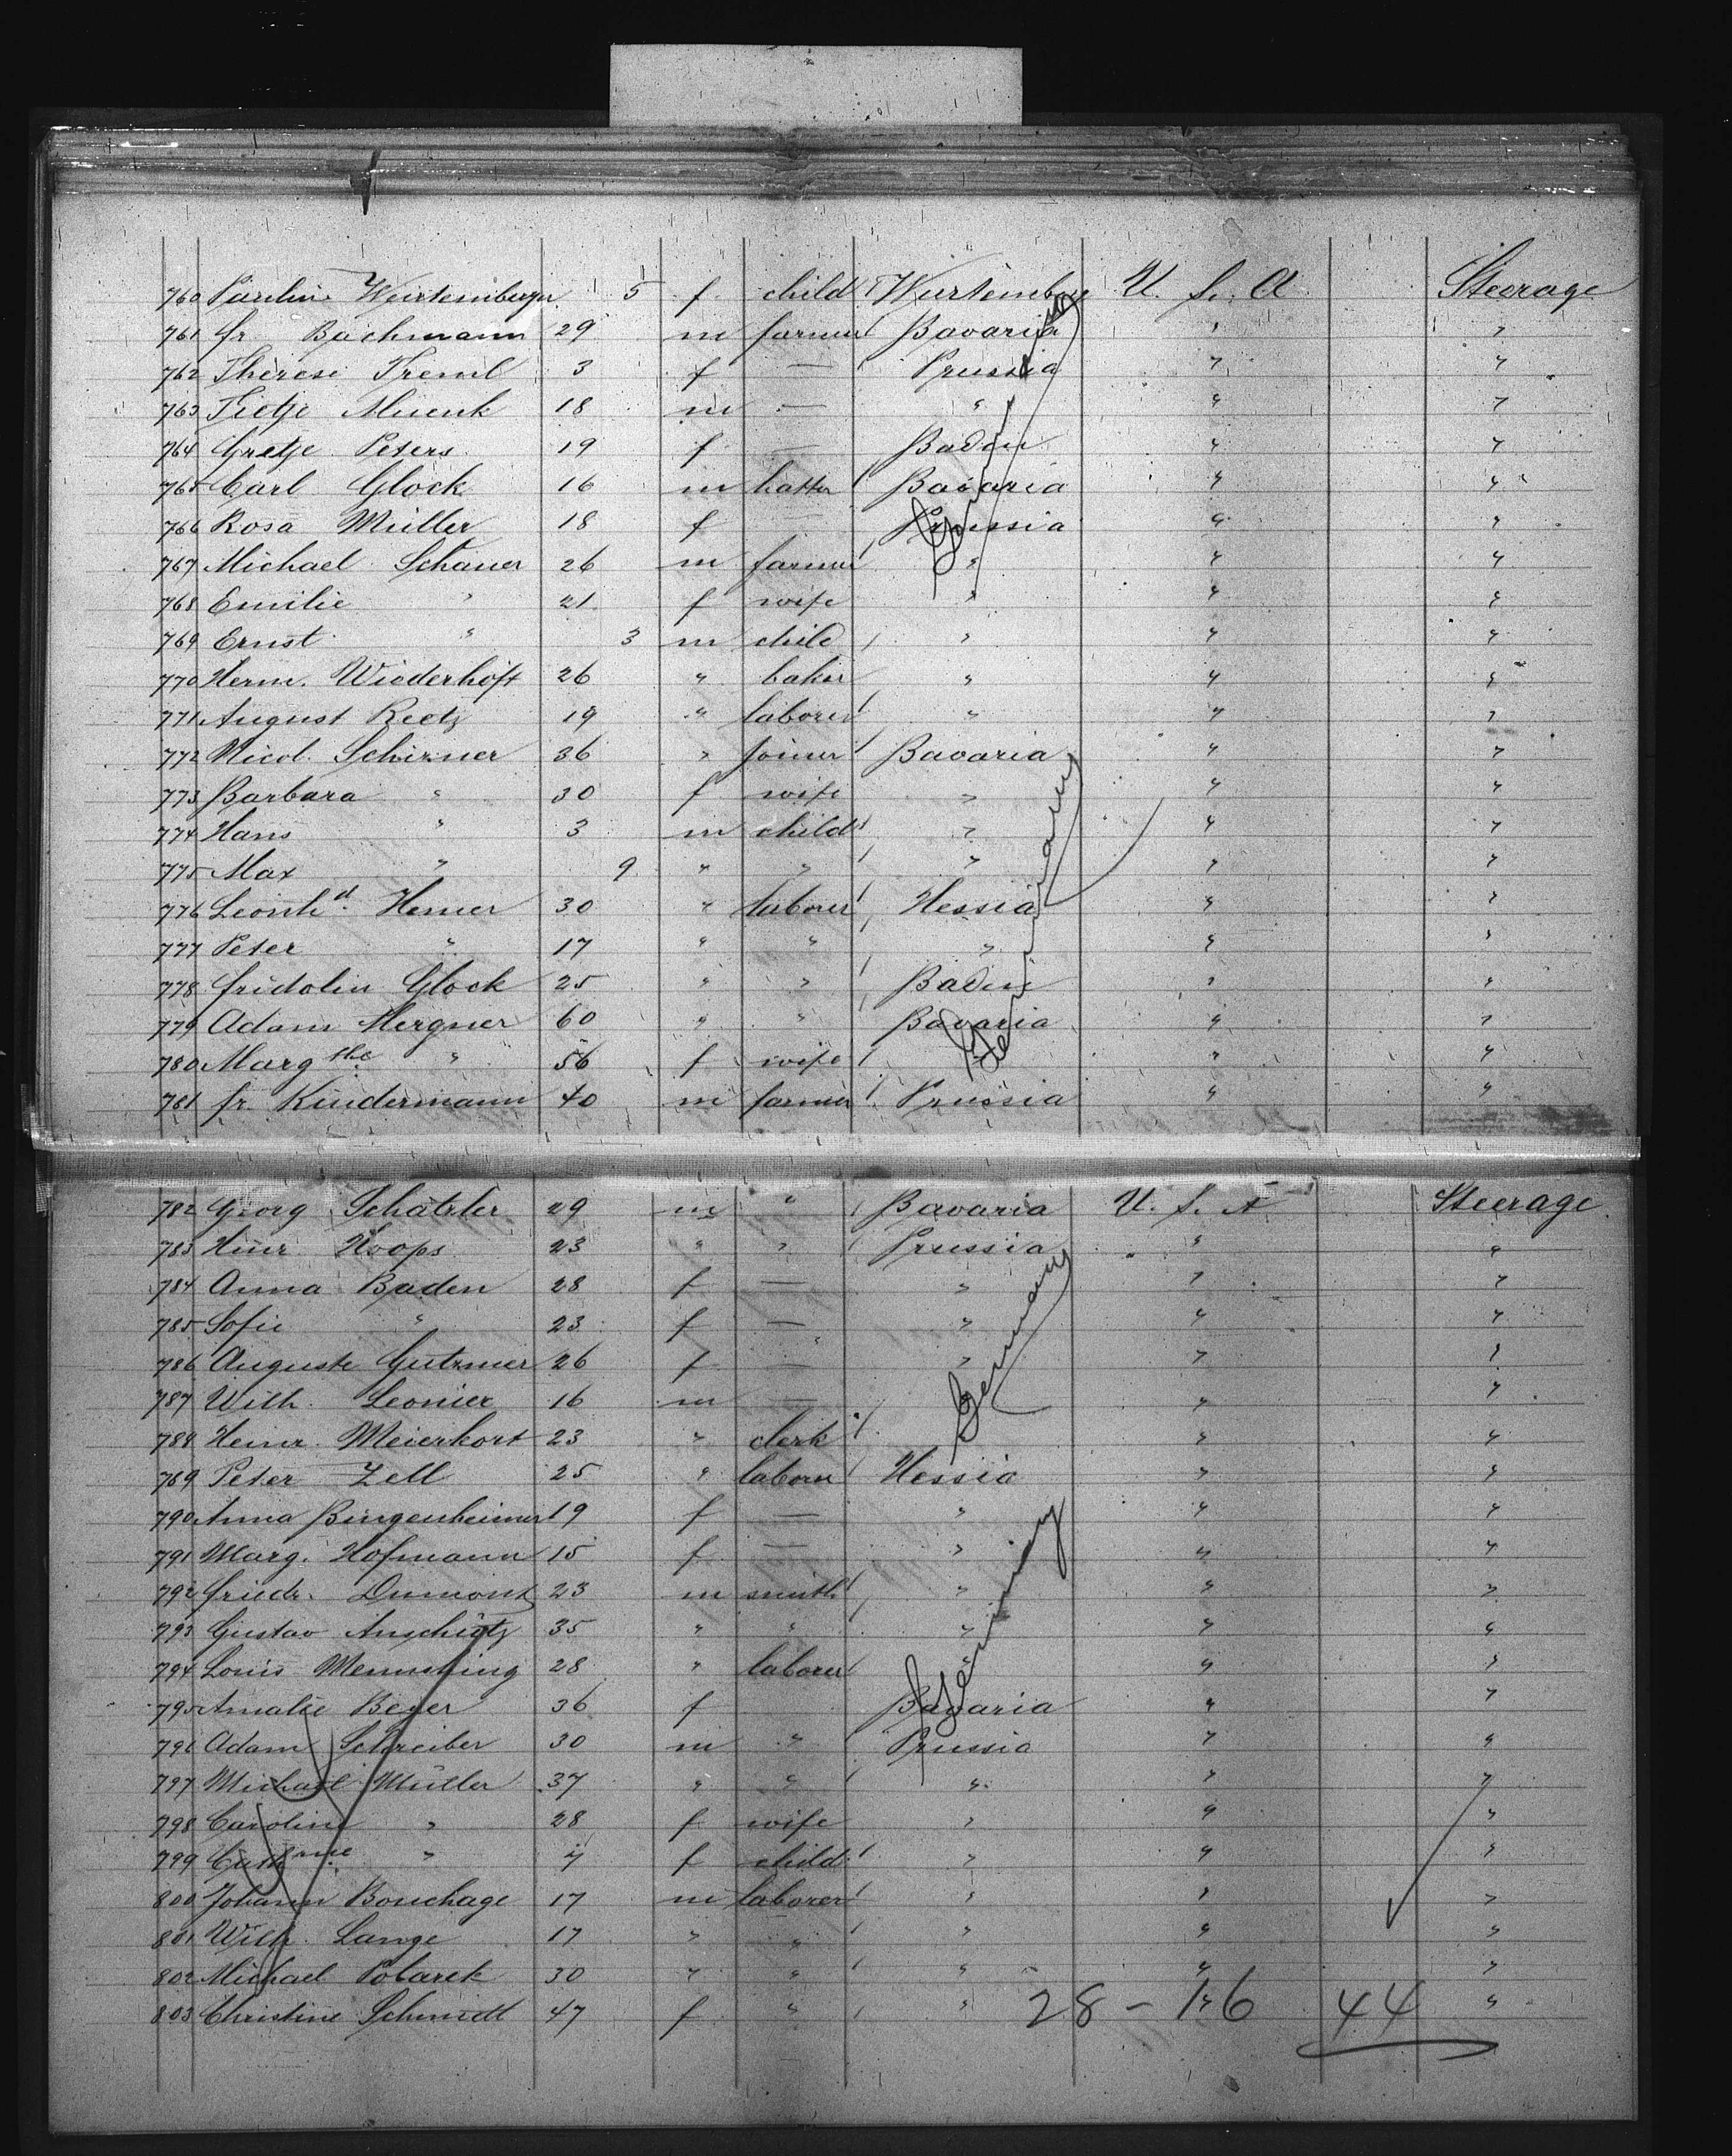 760 Pauline Würtemberger 5 f child Wurtemberg U. S. A Steerage
761 fr Bachmann 29 m farmer Bavaria " "
762 Therese Treml 3 f — Prussia " "
763 Tietje Muenk 18 m — " " "
764 Gretje Peters 19 f — Baden " "
765 Carl Glock 16 m hatter Bavaria " "
766 Rosa Müller 18 f — Prussia " "
767 Michael Schauer 26 m farmer " " "
768 Emilie " 21 f wife " " "
769 Ernst " 3 m child " " "
770 Herm. Wiederhöft 26 " baker " " "
771 August Reetz 19 " laborer " " "
772 Nicol. Schirmer 36 " joiner Bavaria " "
773 Barbara " 30 f wife " " "
774 Hans " 3 m child " " "
775 Max " 9 " " " " "
776 Leonhd. Hemer 30 " laborer Hessia " "
777 Peter " 17 " " " " "
778 fridolin Glock 25 " " Baden " "
779 Adam Mergner 60 " " Bavaria " "
780 Margthe " 56 f wife " "
781 fr. Kindermann 40 m farmer Prussia " "
Germany
Germany
782 Georg Schätzler 29 m " Bavaria U. S. A Steerage
783 Hinr. Hoops 23 " " Prussia " "
784 Anna Baden 28 f — " " "
785 Sofie " 23 f — " " "
786 Auguste Gutzmer 26 f — " " "
787 Wilh. Leonier 16 m — " "
788 Heinr. Meierkort 23 " clerk " "
789 Peter Zell 25 " laborer Hessia " "
790 Anna Bingenheimer 19 f — " " "
791 Marg. Hofmann 15 f — " " "
792 friedr. Dumont 23 m smith " " "
793 Gustav Anschütz 35 " " " " "
794 Louis Mennsching 28 " laborer " " "
795 Amalie Beyer 36 f Bavaria " "
796 Adam Schreiber 30 m " Prussia " "
797 Michael Müller 37 " " " " "
798 Caroline " 28 f wife " " "
799 Cathrine " 4 f child " " "
800 Johann Bonchage 17 m laborer " " "
801 Wilh. Lange 17 " " " " "
802 Michael Polarek 30 " " " " "
803 Christine Schmidt 47 f " " " "
Germany
Germany
28 – 16 44